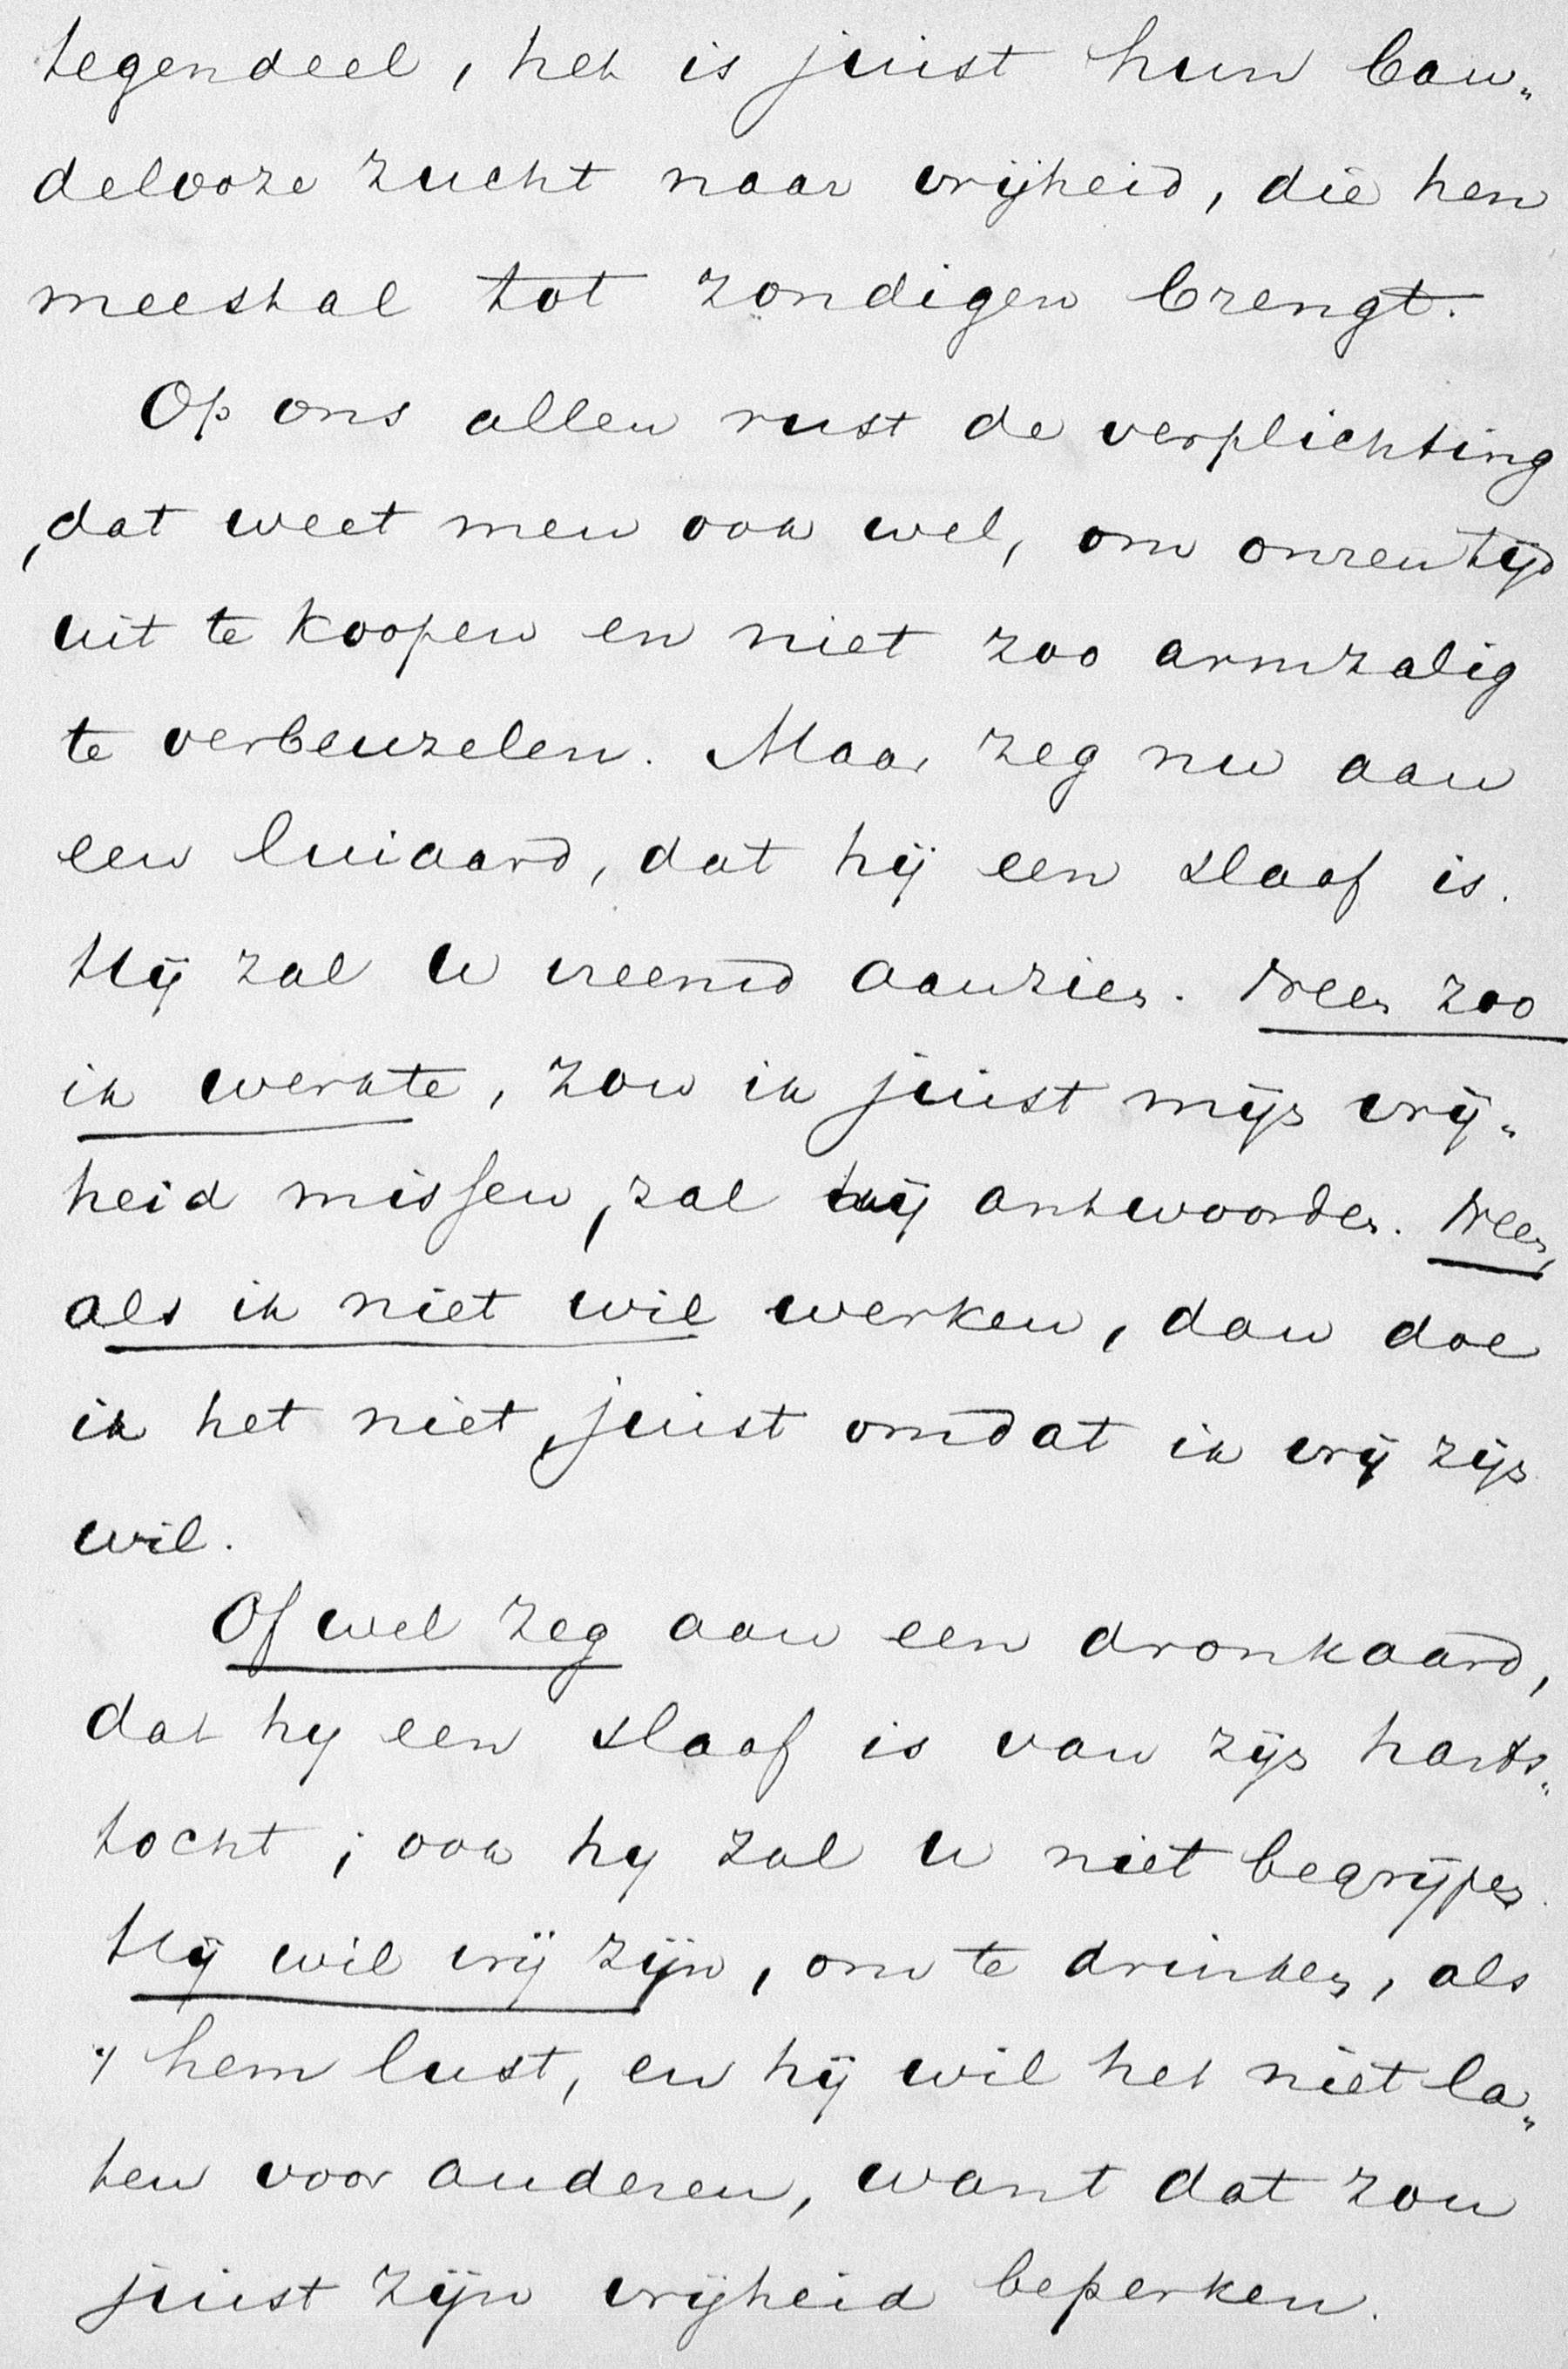 tegendeel, het is juist hun ban„
delooze zucht naar vrijheid, die hen
meestal tot zondigen brengt.
Op ons allen rust de verplichting
, dat weet men ook wel, om onzen tijd
uit te koopen en niet zoo armzalig
te verbeuzelen. Maar zeg nu aan
een luiaard, dat hij een slaaf is.
Hij zal u vreemd aanzien. Neen zoo
ik werkte, zou ik juist mijn vrij„
heid missen, zal hij antwoorden. Neen,
als ik niet wil werken, dan doe
ik het niet, juist omdat ik vrij zijn
wil.
Of wel zeg aan een dronkaard,
dat hy een slaaf is van zijn harts„
tocht; ook hy zal u niet begrijpen.
Hij wil vrij zijn, om te drinken, als
't hem lust, en hij wil het niet la„
ten voor anderen, want dat zou
juist zijn vrijheid beperken.